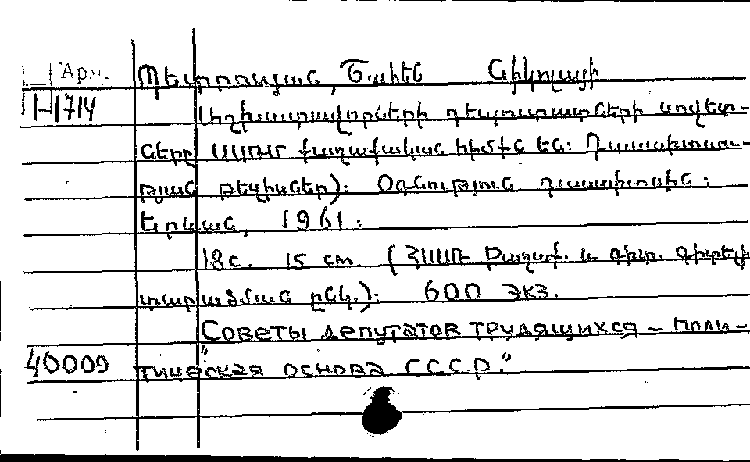 Арм. Պետրոսյան, Ծ Նիկոլայի
1-1714 Աշխատավորների դեպուտատների սովետ-
ները ՍՍՌՄ քաղաքական հիմքն են: Դասախոսու-
թյան թեզիսներ): Օգնություն դասախոսին:
Երևան, 1961:
18с. 15 см. (ՀՍՍՌ Քաղաք. և գիտ. գիտել.
տարածման ընկ.): 600 экз.
"Советы депутатов трудящихся – поли-
40009 тическая основа СССР."